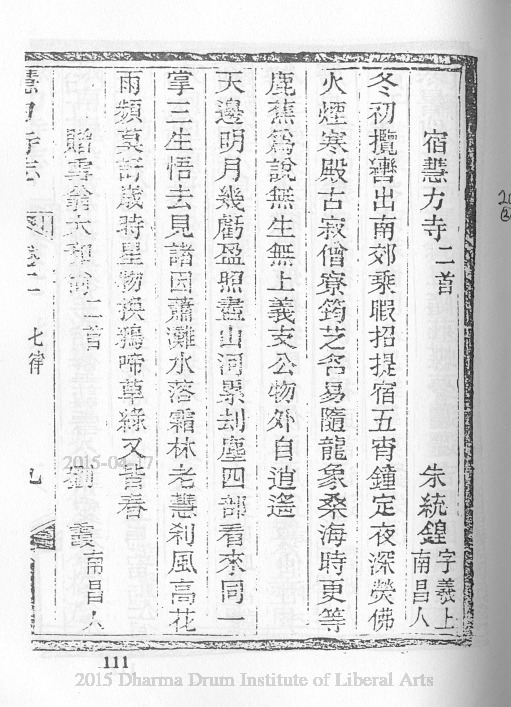 宿慧力寺二首 朱統鍠字義上南昌人
冬初攬轡出南郊乘暇招提宿五宵鐘定夜深熒佛
火煙寒殿古寂僧寮筠芝名易隨龍象桑海時更等
鹿蕉爲說無生無上義支公物外自逍遙
天邊明月幾虧盈照盡山河累刦塵四部看來同一
掌三生悟去見諸因蕭灘水落霜林老慧刹風高花
雨頻莫訝歲時星物換鶯啼草綠又皆春
贈雪翁大和尙二首 霞南昌人
慧力寺志 卷二 七律 九
111
2015 Dharma Drum Institute of Liberal Arts